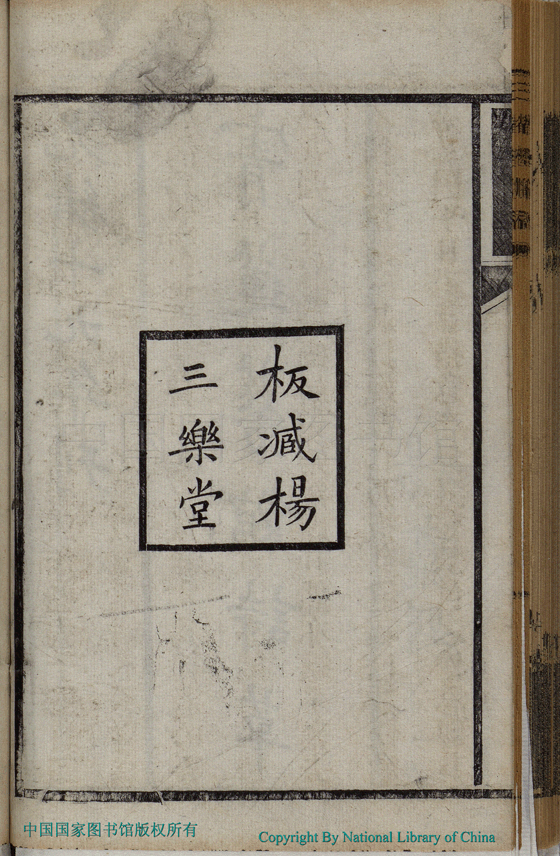 板臧楊
三樂堂
中国国家图书馆版权所有
Copyright By National Library of China